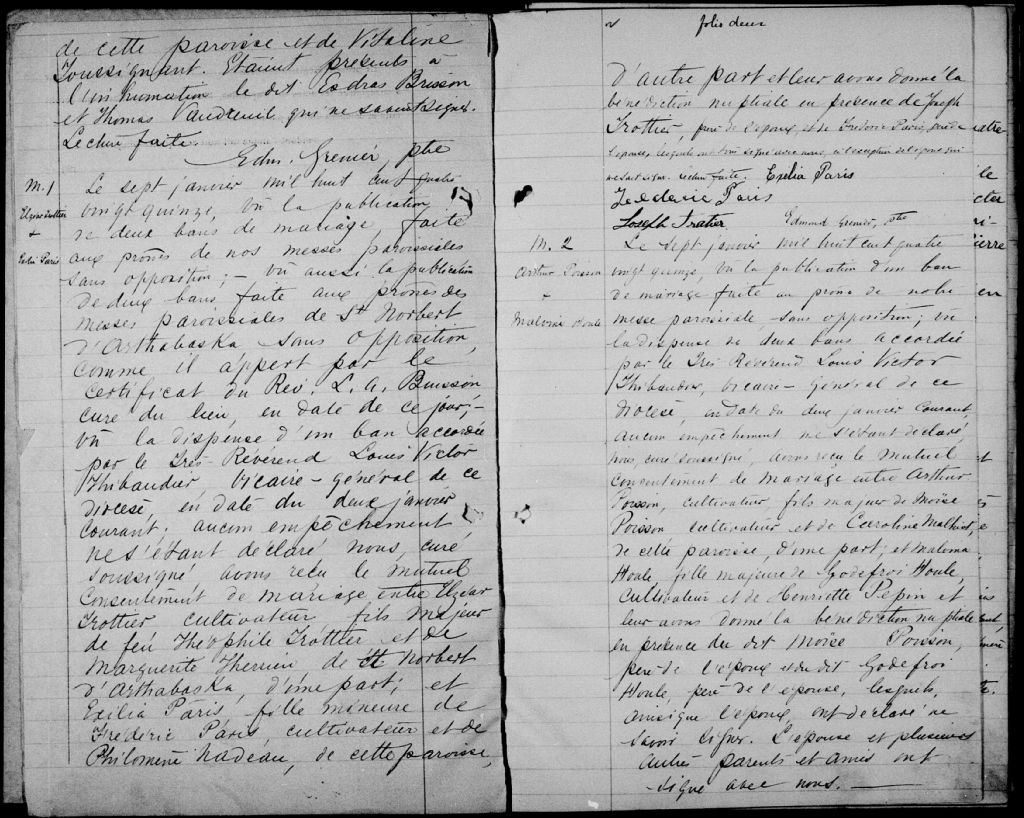 de cette paroisse et de Vitaline
Toussignant. Etaient présents à
l'inhumation le dit Esdras Brisson
et Thomas Vaudreuil qui ne savent signer.
Lecture faite.
Edm. Grenier, ptre
M. 1
Elzéar Trottier
+
Exilia Paris
Le sept janvier mil huit cent quatre
vingt quinze, vu la publication
de deux bans de mariage, faite
aux prônes de nos messes paroissiales
sans opposition; - vu aussi la publication
de deux bans faite aux prônes des
messes paroissiales de St Norbert
d'Arthabaska sans opposition,
comme il appert par le
certificat du Rev. L. A. Buisson
curé du lieu, en date de ce jour; -
vu la dispense d'un ban accordée
par le Très-Révérend Louis Victor
Thibaudier, vicaire-général de ce
diocèse, en date du deux janvier
courant; aucun empêchement
ne s'étant déclaré nous, curé
soussigné, avons reçu le mutuel
consentement de mariage entre Elzéar
Trottier cultivateur, fils majeur
de feu Théophile Trottier et de
Marguerite Therrien de St Norbert
d'Arthabaska, d'une part; et
Exilia Paris, fille mineure de
Fréderic Paris, cultivateur et de
Philomène Nadeau, de cette paroisse,
folio deux
d'autre part et leur avons donné la
bénédiction nuptiale en présence de Joseph
Trottier, père de l'époux, et de Fréderic Paris, père de
l'épouse, lesquels ont tous signé avec nous, à l'exception de l'époux qui
ne sait signer. Lecture faite. Exilia Paris
Frederic Paris
Joseph Tratier Edmund Grenier, ptre
M. 2
Arthur Poisson
+
Malvina Houle
Le sept janvier mil huit cent quatre
vingt quinze, vu la publication d'un ban
de mariage faite au prône de notre
messe paroissiale, sans opposition; vu
la dispense de deux bans accordée
par le Très Révérend Louis Victor
Thibaudier, vicaire-général de ce
diocèse, en date du deux janvier courant,
aucun empêchement ne s'étant déclaré,
nous, curé soussigné, avons reçu le mutuel
consentement de mariage entre Arthur
Poisson, cultivateur, fils majeur de Moïse
Poisson cultivateur et de Caroline
de cette paroisse, d'une part; et
Houle, fille majeure de Godefroi Houle,
cultivateur et de Henriette Pepin et
leur avons donné la bénédiction nuptiale
en présence du dit Moïse Poisson,
père de l'époux et du dit Godefroi
Houle, père de l'épouse, lesquels,
ainsi que l'époux, ont déclaré ne
savoir signer. L'épouse et plusieurs
autres parents et amis ont
signé avec nous.